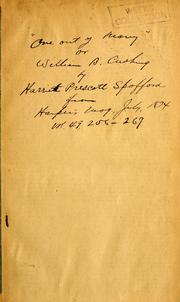 "One out of Many"
or
William B. Cushing
by
Harriet Prescott Spofford
from
Harper's Mag. July, 1874
vol. 49 256-267